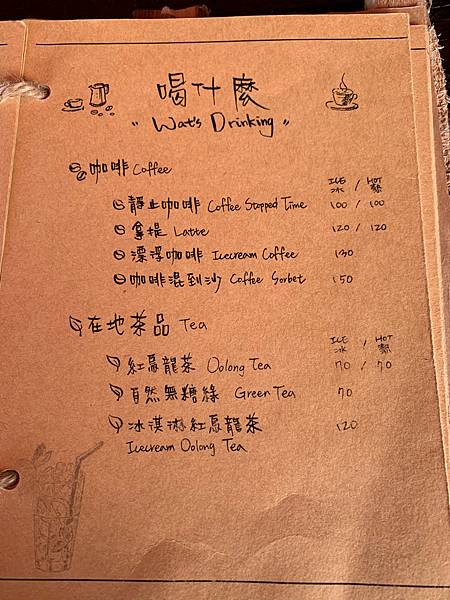 喝什麼
"Wat's Drinking"
咖啡 Coffee ICE 冰 / HOT 熱
靜止咖啡 Coffee Stopped Time 100 / 100
拿提 Latte 120 / 120
漂浮咖啡 Icecream Coffee 130
咖啡混到沙 Coffee Sorbet 150
在地茶品 Tea ICE 冰 / HOT 熱
紅烏龍茶 Oolong Tea 70 / 70
自然無糖綠 Green Tea 70
冰淇淋紅烏龍茶 120
Icecream Oolong Tea